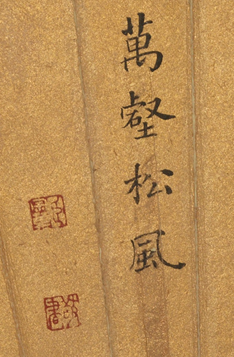 萬壑松風